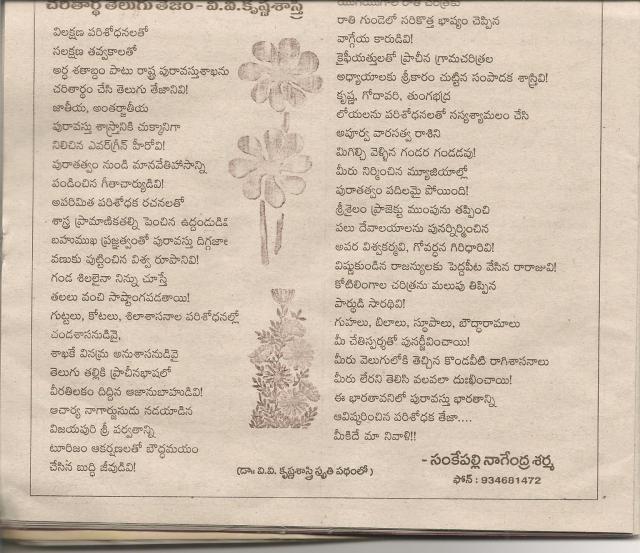 చరితార్థ తెలుగు తేజం - వి.వి.కృష్ణశాస్త్రి
విలక్షణ పరిశోధనలతో
సలక్షణ తవ్వకాలతో
అర్ధ శతాబ్దం పాటు రాష్ట్ర పురావస్తుశాఖను
చరితార్థం చేసి తెలుగు తేజానివి!
జాతీయ, అంతర్జాతీయ
పురావస్తు శాస్త్రానికి చుక్కానిగా
నిలిచిన ఎవర్‌గ్రీన్ హీరోవి!
పురాతత్వం నుండి మానవేతిహాసాన్ని
పండించిన గీతాచార్యుడివి!
అపరిమిత పరిశోధక రచనలతో
శాస్త్ర ప్రామాణికతల్ని పెంచిన ఉద్దండుడివి
బహుముఖ ప్రజ్ఞత్వంతో పురావస్తు దిగ్గజాల
వణుకు పుట్టించిన విశ్వ రూపానివి!
గండ శిలలైనా నిన్ను చూస్తే
తలలు వంచి సాష్టాంగపడతాయి!
గుట్టలు, కోటలు, శిలాశాసనాల పరిశోధనల్లో
చండశాసనుడివై,
శాఖకే వినమ్ర అనుశాసనుడివై
తెలుగు తల్లికి ప్రాచీనభాషలో
వీరతిలకం దిద్దిన ఆజానుబాహుడివి!
ఆచార్య నాగార్జునుడు నడయాడిన
విజయపురి శ్రీ పర్వతాన్ని
టూరిజం ఆకర్షణలతో బౌద్ధమయం
చేసిన బుద్ధి జీవుడివి!
రాతి గుండెలో సరికొత్త భాష్యం చెప్పిన
వాగ్గేయ కారుడివి!
కైఫీయత్తులతో ప్రాచీన గ్రామచరిత్రల
అధ్యాయాలకు శ్రీకారం చుట్టిన సంపాదక శాస్త్రివి!
కృష్ణ, గోదావరి, తుంగభద్ర
లోయలను పరిశోధనలతో సస్యశ్యామలం చేసి
అపూర్వ వారసత్వ రాశిని
మిగిల్చి వెళ్ళిన గండర గండడవు!
మీరు నిర్మించిన మ్యూజియాల్లో
పురాతత్వం పదిలమై పోయింది!
శ్రీశైలం ప్రాజెక్టు ముంపును తప్పించి
పలు దేవాలయాలను పునర్నిర్మించిన
అపర విశ్వకర్మవి, గోవర్ధన గిరిధారివి!
విష్ణుకుండిన రాజన్యులకు పెద్దపీట వేసిన రారాజువి!
కోటిలింగాల చరిత్రను మలుపు తిప్పిన
పార్థుడి సారథివి!
గుహలు, బిలాలు, స్థూపాలు, బౌద్ధారామాలు
మీ చేతిస్పర్శతో పునర్జీవించాయి!
మీరు వెలుగులోకి తెచ్చిన కొండవీటి రాగిశాసనాలు
మీరు లేరని తెలిసి వలవలా దుఃఖించాయి!
ఈ భారతావనిలో పురావస్తు భారతాన్ని
ఆవిష్కరించిన పరిశోధక తేజా....
మీకిదే మా నివాళి!!
(డా: వి.వి. కృష్ణశాస్త్రి స్మృతి పథంలో)
- సంకేపల్లి నాగేంద్ర శర్మ
ఫోన్ : 934681472